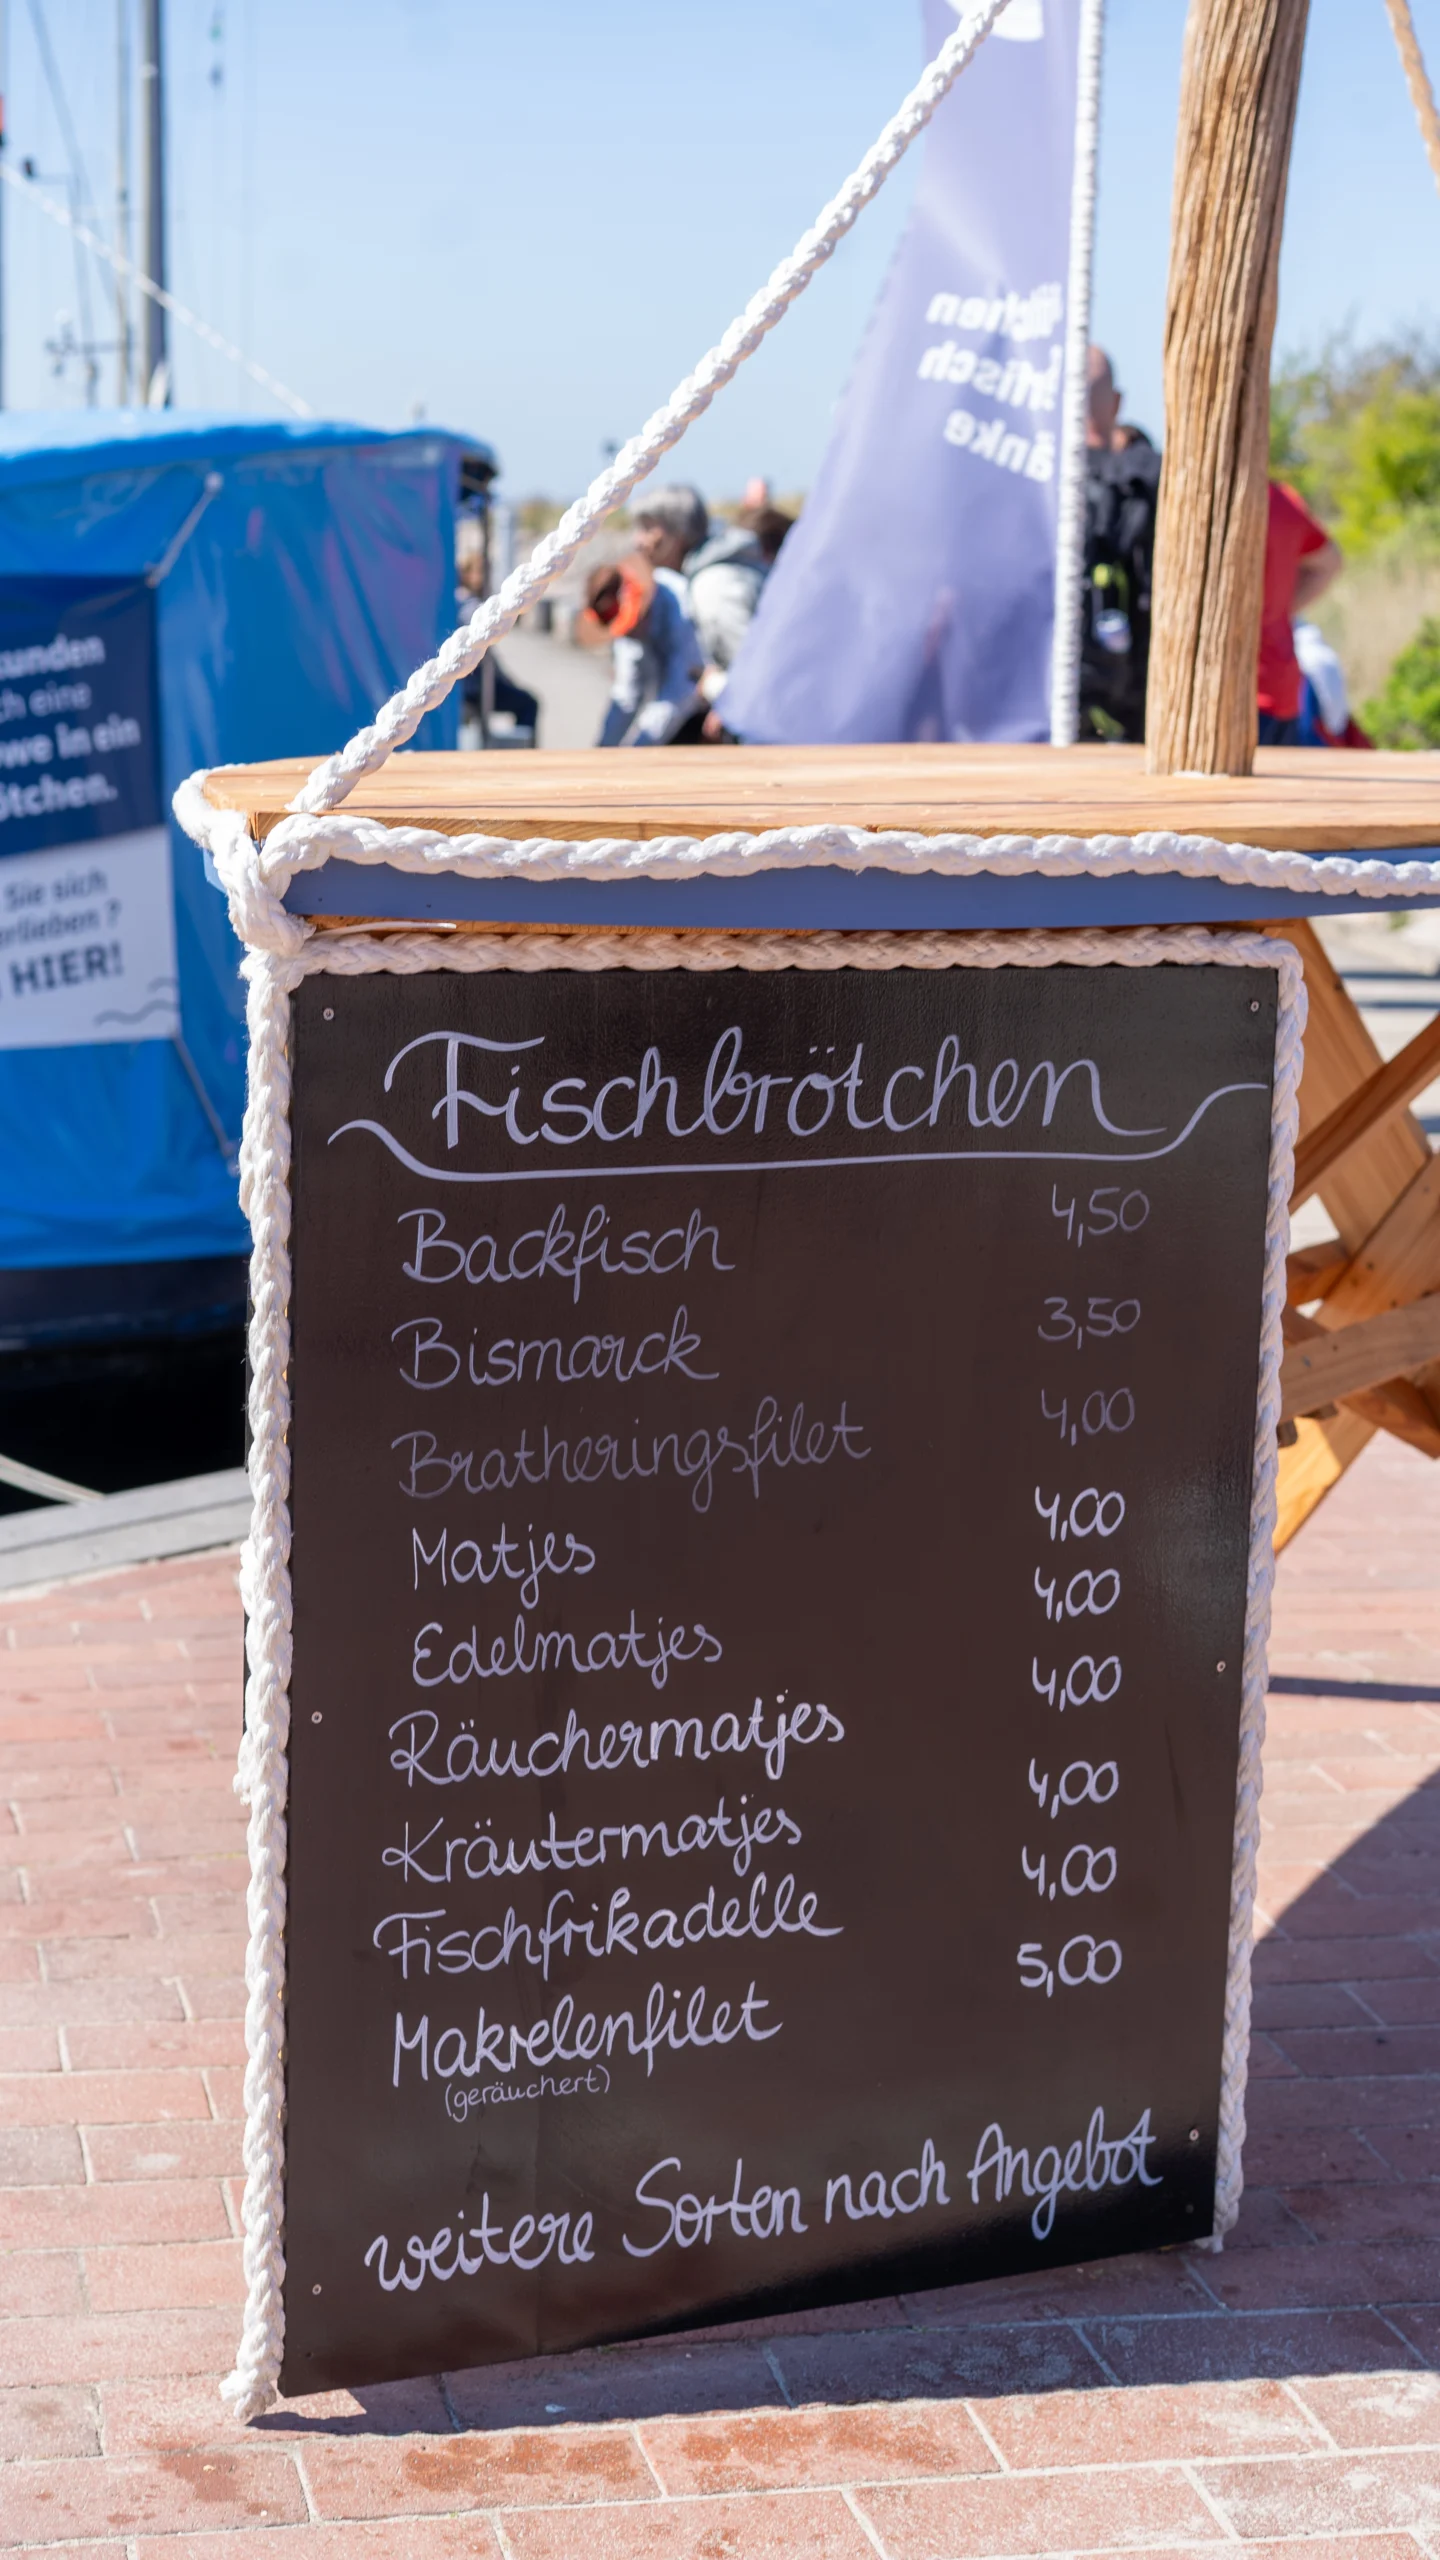 kunden
ch eine
we in ein
ötchen.
Sie sich
erlieben ?
HIER!
chen
fisch
änke
Fischbrötchen
Backfisch 4,50
Bismarck 3,50
Bratheringsfilet 4,00
Matjes 4,00
Edelmatjes 4,00
Räuchermatjes 4,00
Kräutermatjes 4,00
Fischfrikadelle 4,00
Makrelenfilet 5,00
(geräuchert)
weitere Sorten nach Angebot